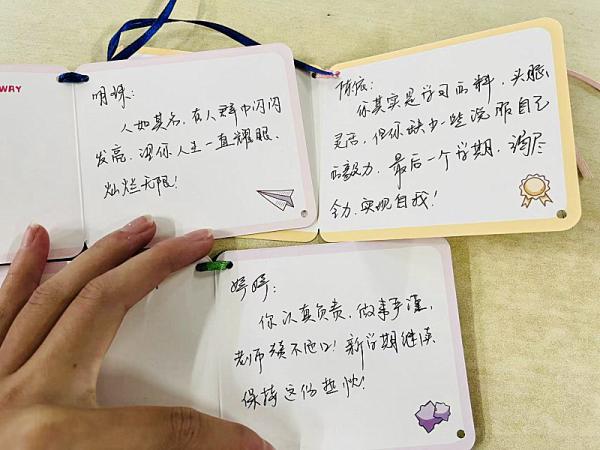 WRY
明珠：
人如其名，在人群中闪闪
发亮，愿你人生一直耀眼、
灿烂无限！
倩依：
你其实是学习的料，头脑
灵活，但你缺少一些说服自己
的毅力，最后一个学期，竭尽
全力，实现自我！
婷婷：
你认真负责，做事严谨，
老师赞不绝口！新学期继续
保持这份热忱！